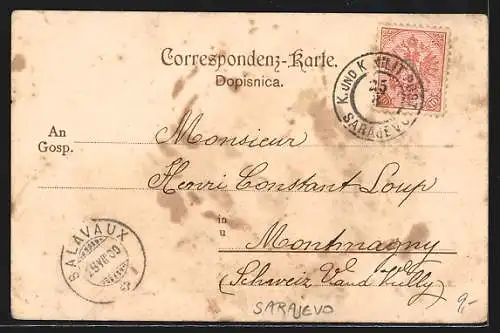 Correspondenz-Karte.
Dopisnica.
K. UND K. MILIT. POST
25
SARAJEVO
An
Gosp.
Monsieur
Henri Constant Loup
in
u
Montmagny
(Schweiz Vaud Vully)
SALAVAUX
VIII 00
SARAJEVO
9,-